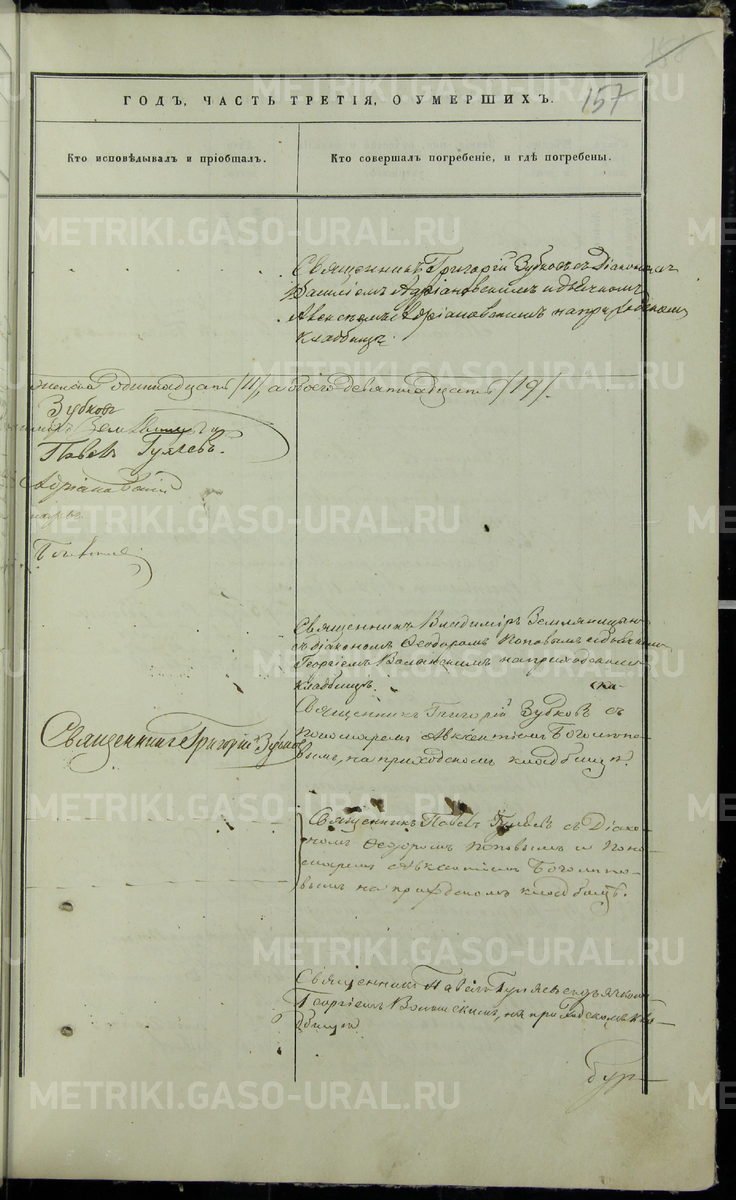 158
157
ГОДЪ, ЧАСТЬ ТРЕТІЯ, О УМЕРШИХЪ.
Кто исповѣдывалъ и пріобщалъ.
Кто совершалъ погребеніе, и гдѣ погребены.
Священникъ Григорій Зубковъ съ Діакономъ
Василіемъ Адріановскимъ и дьячкомъ
Адріановскимъ на приходскомъ
кладбищѣ.
одиннадцать /11/, а всего девятнадцать /19/.
Зубковъ
Павелъ Гуляевъ.
Адріановскій
Священникъ Владиміръ Земляницынъ
съ діакономъ Ѳеодоромъ Поповымъ и дьячкомъ
Георгіемъ на приходскомъ
кладбищѣ.
Священникъ Григорій Зубковъ съ
пономаремъ Авксентіемъ Боголѣпо-
вымъ, на приходскомъ кладбищѣ.
Священникъ Григорій Зубковъ
Священникъ Павелъ Гуляевъ съ Діако-
номъ Ѳеодоромъ Поповымъ и поно-
маремъ Авксентіемъ Боголѣпо-
вымъ на приходскомъ кладбищѣ.
Священникъ Павелъ Гуляевъ съ дьячкомъ
Георгіемъ на приходскомъ кла-
дбищѣ
бур-
METRIKI.GASO-URAL.RU